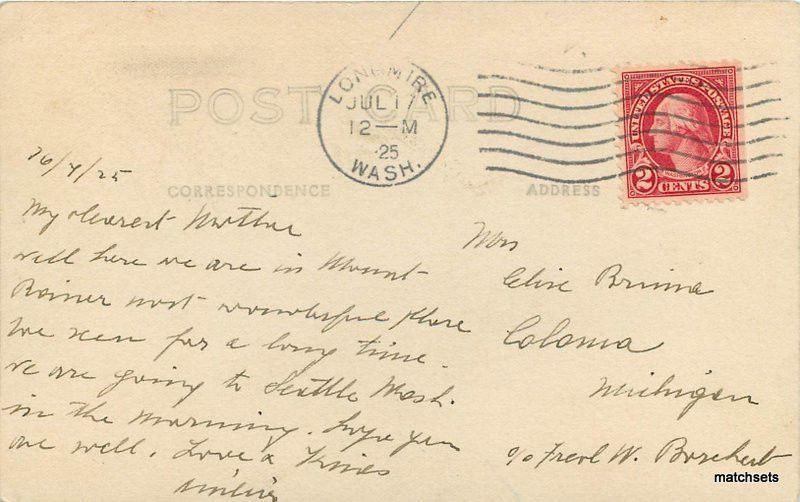 POST CARD
LONGMIRE
JUL 17
12—M
25
WASH.
UNITED STATES POSTAGE
2 CENTS 2
CORRESPONDENCE
ADDRESS
16/7/25
My dearest Mother
well here we are in Mount
Rainer most wonderful place
we seen for a long time.
we are going to Seattle Wash.
in the morning. hope you
are well. Love & Kisses
Mrs
Elise
Coloma
Michigan
c/o Fred W. Borchert
matchsets